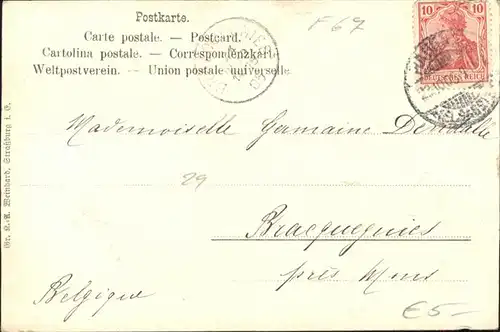 Postkarte.
Carte postale. — Postcard.
Cartolina postale. — Correspondenzkarte.
Weltpostverein. — Union postale universelle.
F 67
10 10
DEUTSCHES REICH
Mademoiselle Germaine
29
Bracquegnies
près Mons
Belgique
€5-
Gr. K.-K. Weinhard, Straßburg i. E.